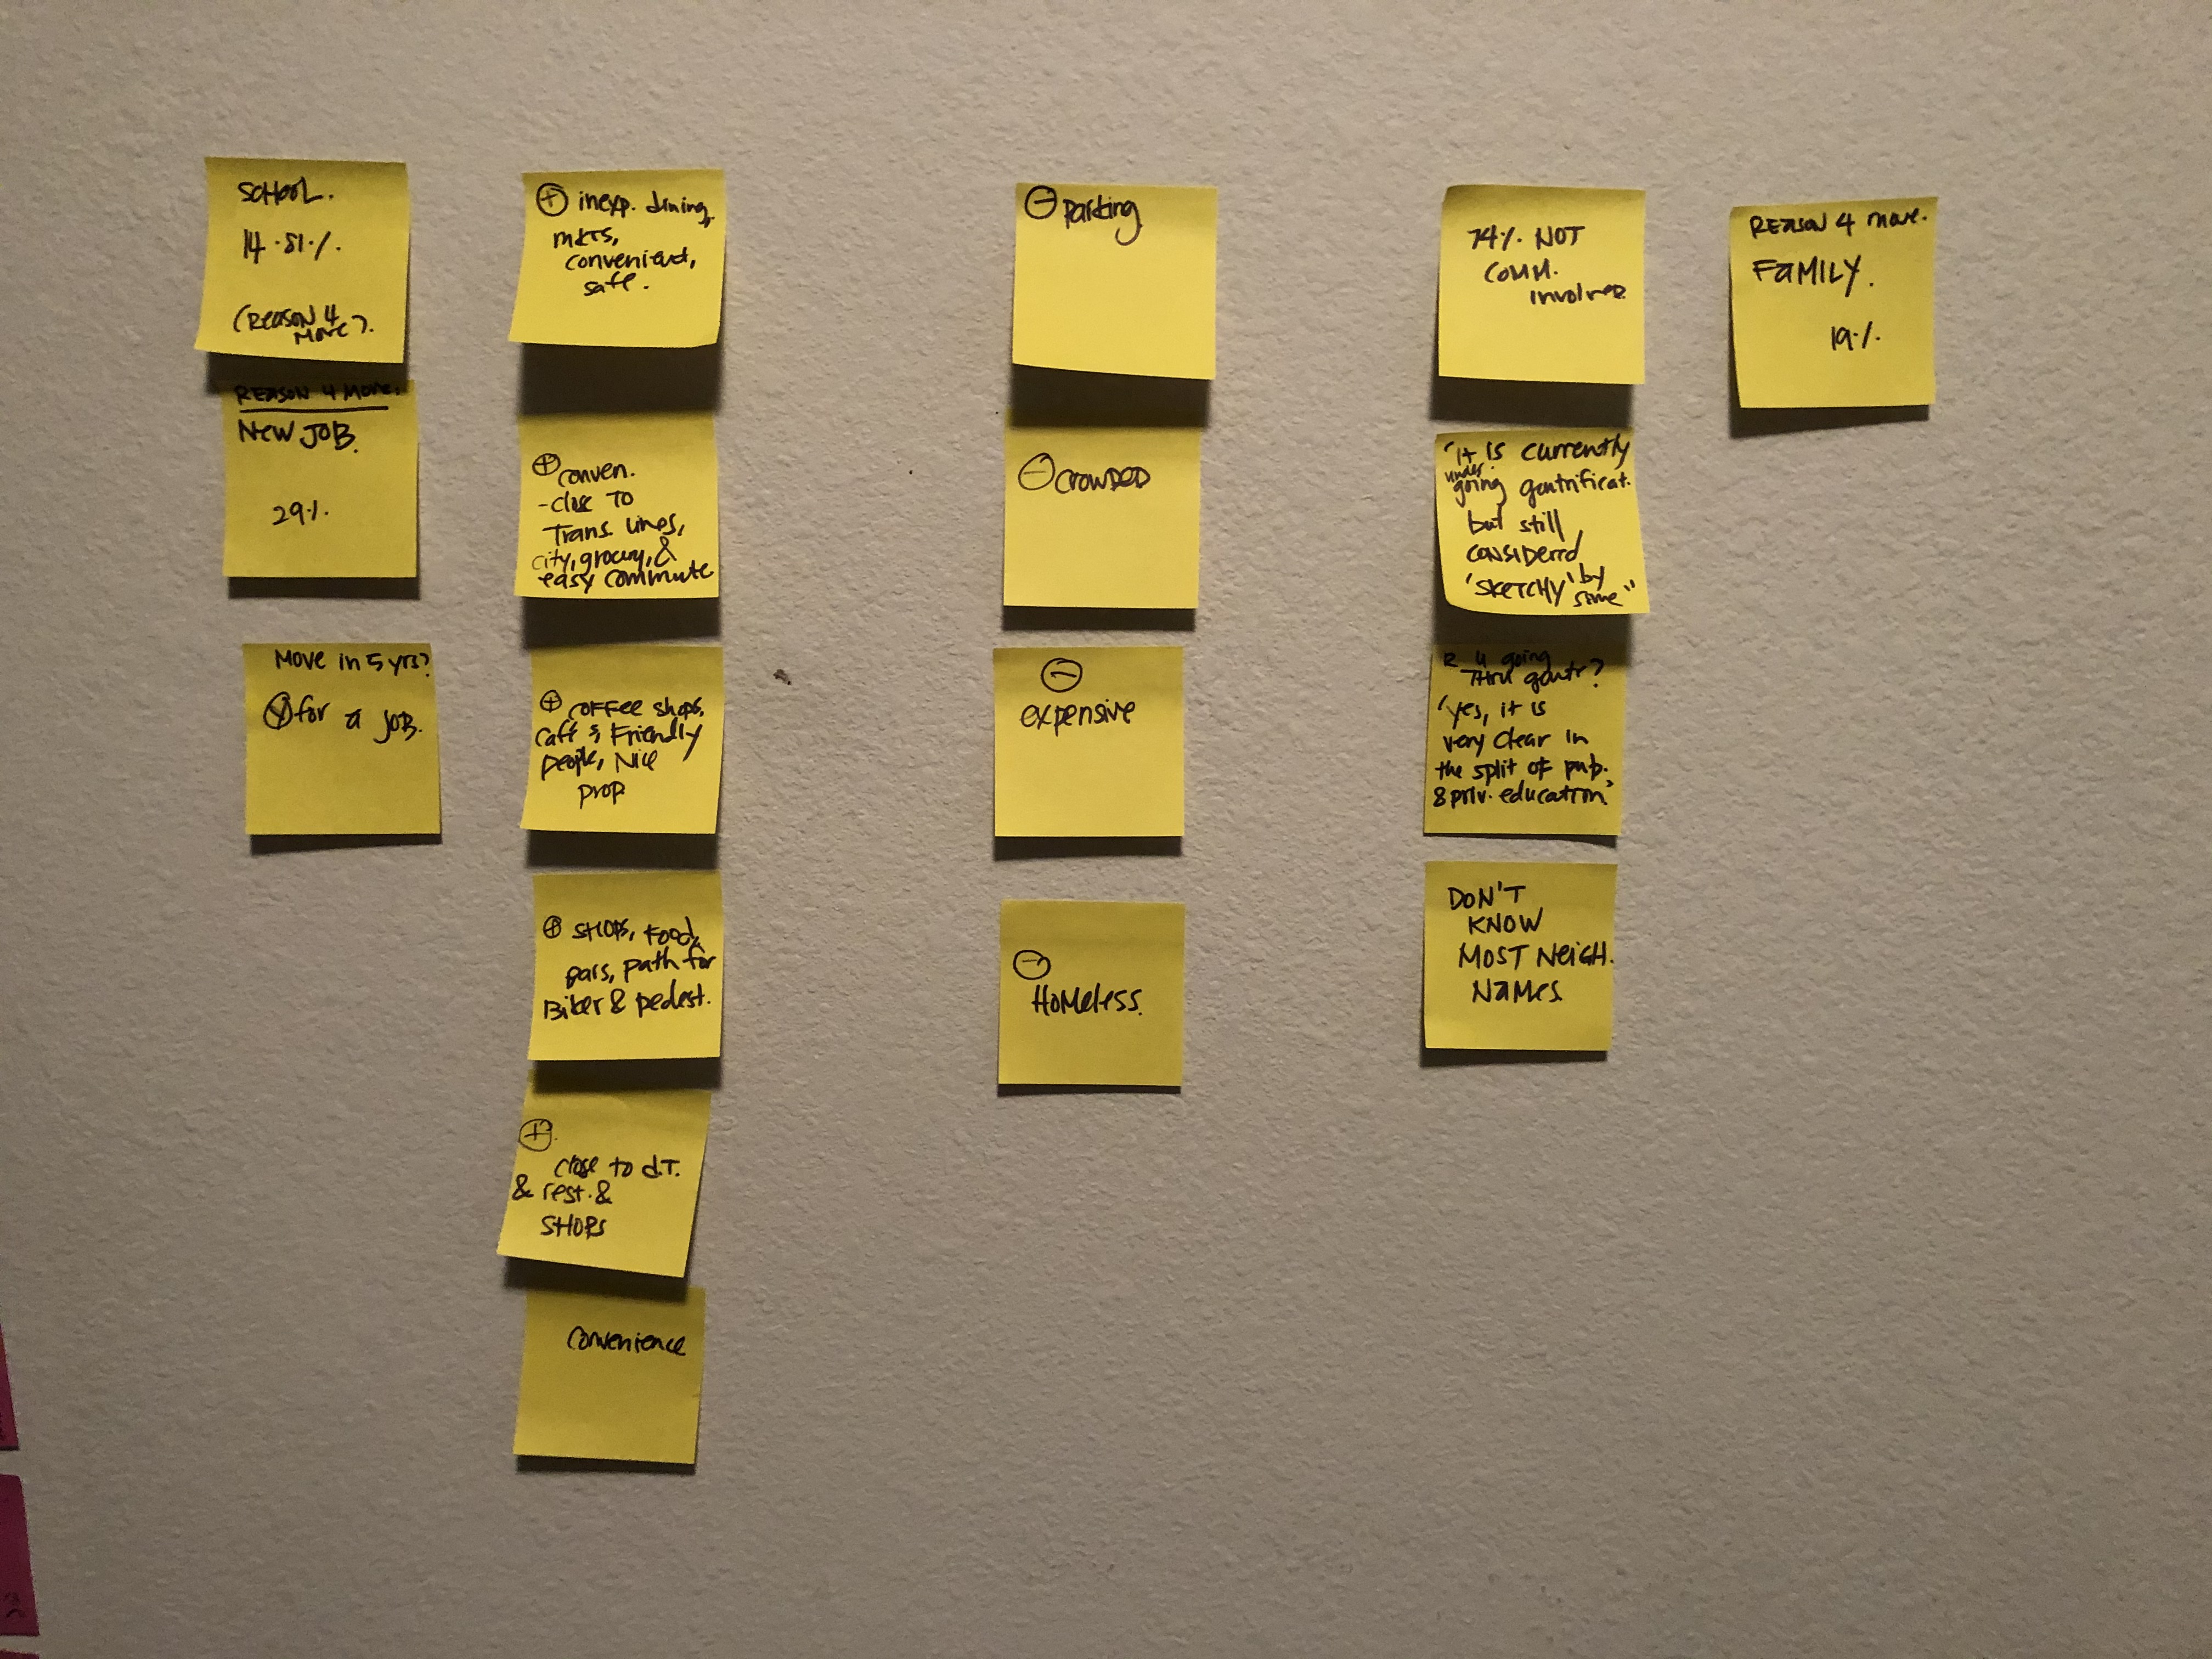 SCHOOL.
14.81%.
(REASON 4
MOVE).
REASON 4 MOVE.
NEW JOB.
29%.
MOVE in 5 yrs?
Y for a JOB.
+ inexp. dining,
mkts,
convenient,
safe.
+ conven.
- close TO
Trans. lines,
city, grocery, &
easy commute
+ COFFEE shops,
café's, Friendly
people, Nice
prop
+ SHOPS, FOOD,
bars, path for
Biker & pedest.
+
close to d.T.
& rest. &
SHOPS
Convenience
- parking
- CROWDED
-
expensive
-
HOMELESS.
74% NOT
COMM.
involved
"it is currently
under
going gentrificat.
but still
CONSIDERED
'SKETCHY' by
some"
R u going
THRU gentr?
"yes, it is
very clear in
the split of pub.
& priv. education"
DON'T
KNOW
MOST NEIGH.
NAMES
REASON 4 move.
FAMILY.
19%.